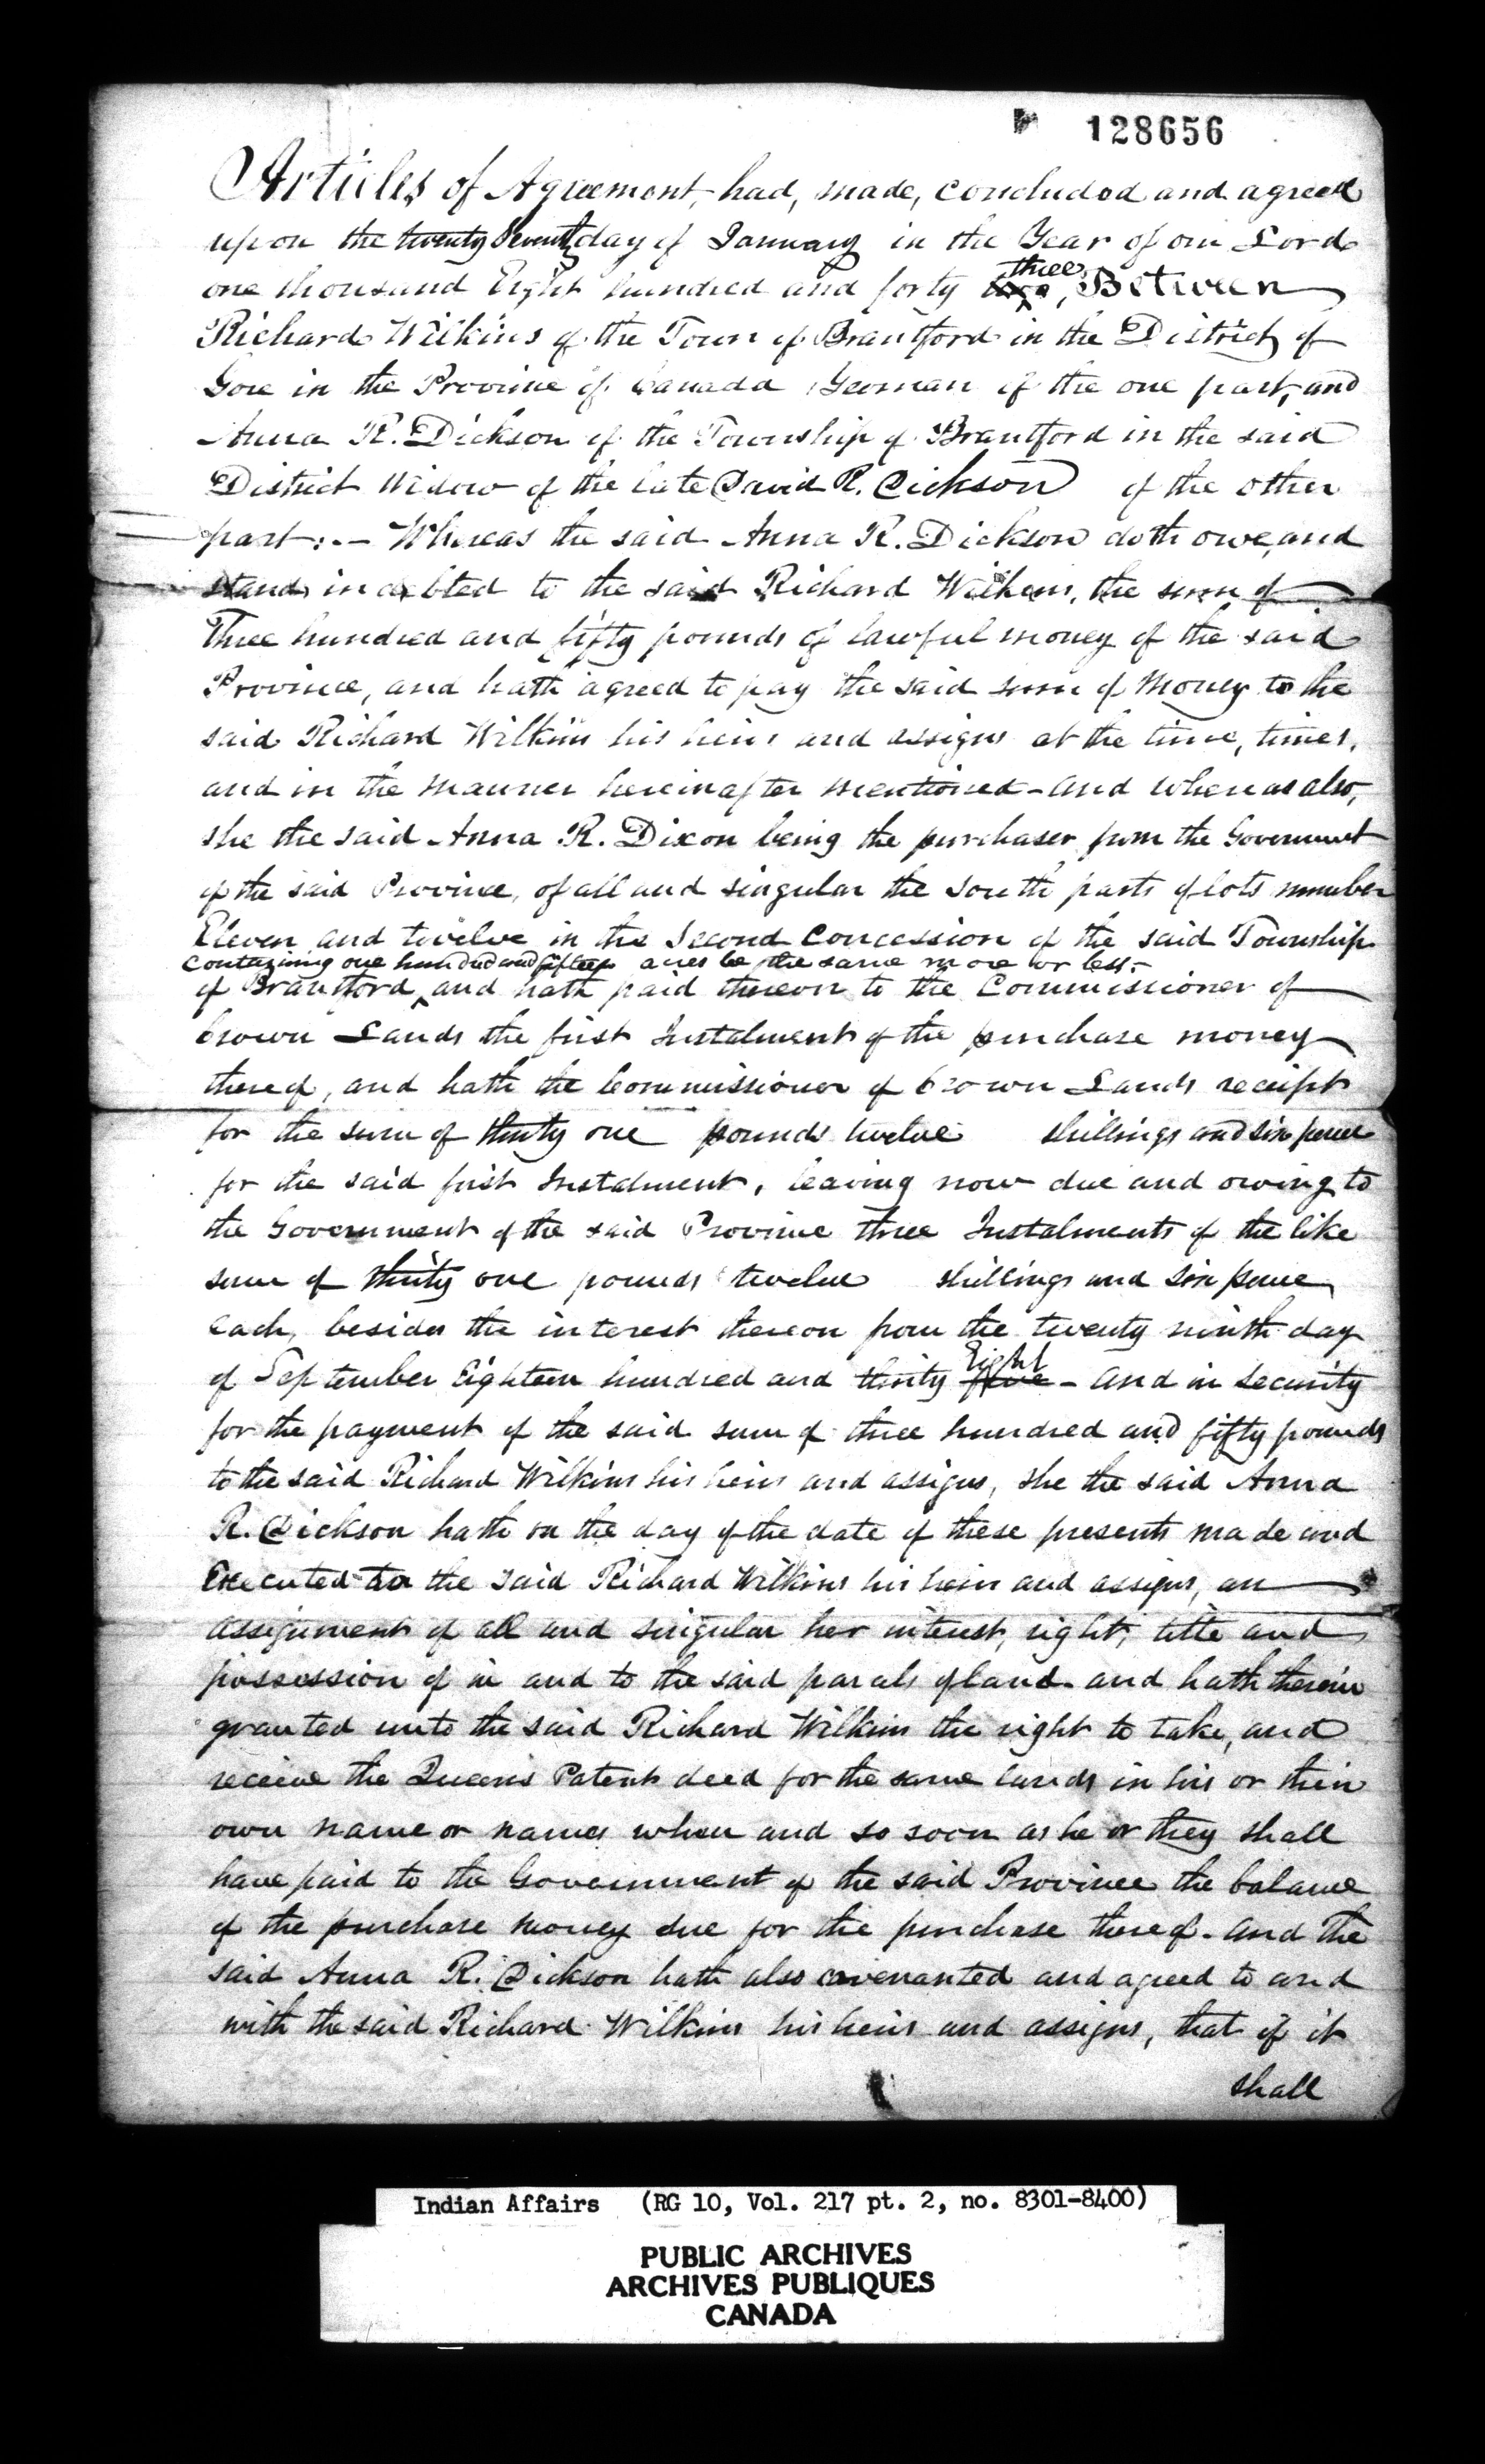 128656
Articles of Agreement, had, made, concluded and agreed
upon the twenty seventh day of January in the Year of our Lord
three
one thousand Eight hundred and forty two, Between
Richard Wilkins of the Town of Brantford in the District of
Gore in the Province of Canada Yeoman of the one part, and
Anna R. Dickson of the Township of Brantford in the said
District Widow of the late David R. Dickson of the other
part:- Whereas the said Anna R. Dickson doth owe, and
stands indebted to the said Richard Wilkins, the sum of
Three hundred and fifty pounds of lawful money of the said
Province, and hath agreed to pay the said sum of Money to the
said Richard Wilkins his heirs and assigns at the time, times,
and in the manner hereinafter mentioned - and whereas also,
she the said Anna R. Dixon being the purchaser from the Government
of the said Province, of all and singular the South parts of lots number
Eleven and twelve in the Second Concession of the said Township
containing one hundred and fifteen acres be the same more or less-
of Brantford, and hath paid thereon to the Commissioner of
Crown Lands the first Instalment of the purchase money
thereof, and hath the Commissioner of Crown Lands receipt
for the sum of thirty one pounds twelve shillings and six pence
for the said first Instalment, leaving now due and owing to
the Government of the said Province three Instalments of the like
sum of thirty one pounds twelve shillings and six pence
each, besides the interest thereon from the twenty ninth day
Eight
of September Eighteen hundred and thirty five - and in security
for the payment of the said sum of three hundred and fifty pounds
to the said Richard Wilkins his heirs and assigns, she the said Anna
R. Dickson hath on the day of the date of these presents made and
Executed to the said Richard Wilkins his heirs and assigns, an
assignment of all and singular her interest, right, title and
possession of in and to the said parcels of land - and hath therein
granted unto the said Richard Wilkins the right to take, and
receive the Queen's Patent deed for the same lands in his or their
own name or names when and so soon as he or they shall
have paid to the Government of the said Province the balance
of the purchase money due for the purchase thereof - and the
said Anna R. Dickson hath also covenanted and agreed to and
with the said Richard Wilkins his heirs and assigns, that if it
shall
Indian Affairs (RG 10, Vol. 217 pt. 2, no. 8301-8400)
PUBLIC ARCHIVES
ARCHIVES PUBLIQUES
CANADA